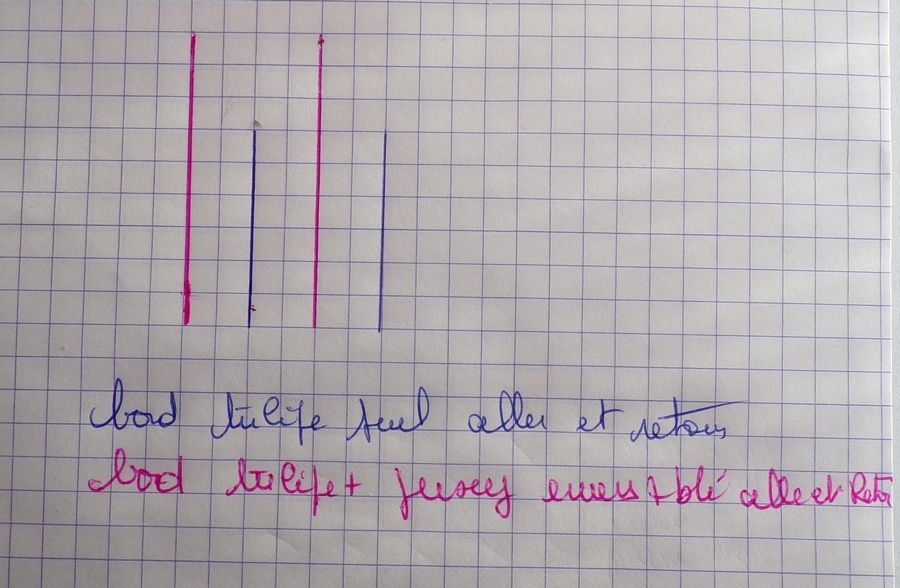 bord tulipe seul aller et retour
bord tulipe + jersey ensemble aller et Retou